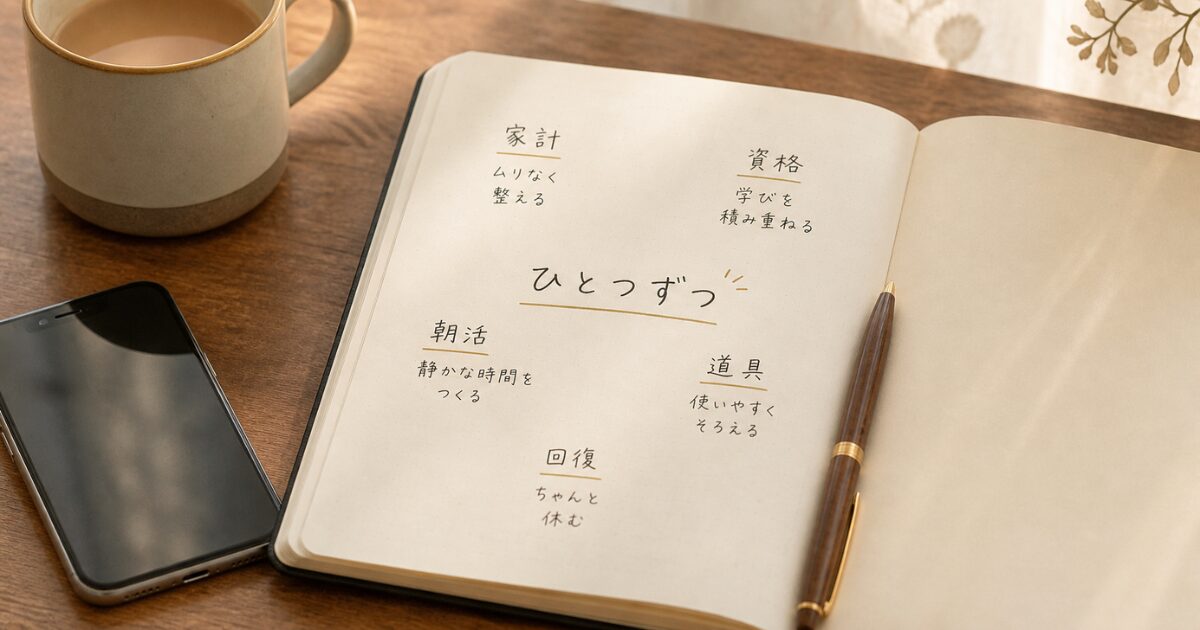 家計
ムリなく
整える
資格
学びを
積み重ねる
ひとつずつ
朝活
静かな時間を
つくる
道具
使いやすく
そろえる
回復
ちゃんと
休む